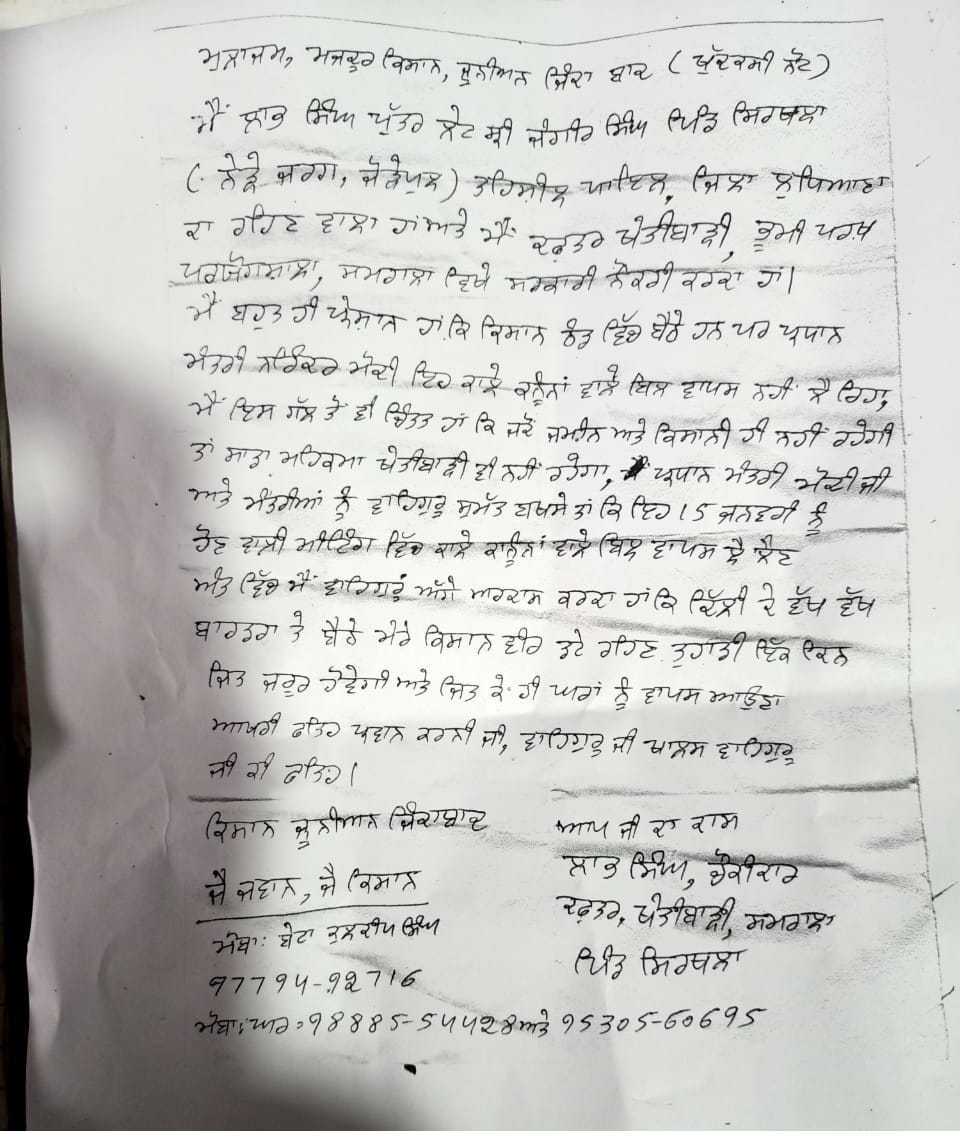 ਮੁਲਾਜਮ, ਮਜਦੂਰ ਕਿਸਾਨ, ਜੂਨੀਅਨ ਜਿੰਦਾ ਬਾਦ (ਖੁੱਦਕਸੀ ਨੋਟ)
ਮੈਂ ਲਾਭ ਸਿੰਘ ਪੁੱਤਰ ਲੇਟ ਸ੍ਰੀ ਜੰਗੀਰ ਸਿੰਘ ਪਿੰਡ ਸਿਰਥਲਾ
(ਨੇੜੇ ਜਰਗ, ਜੋੜੇਪੁਲ) ਤਹਿਸੀਲ ਪਾਇਲ, ਜਿਲਾ ਲੁਧਿਆਣਾ
ਦਾ ਰਹਿਣ ਵਾਲਾ ਹਾਂ ਅਤੇ ਮੈਂ ਦਫ਼ਤਰ ਖੇਤੀਬਾੜੀ, ਭੂਮੀ ਪਰਖ਼
ਪਰਯੋਗਸ਼ਾਲਾ, ਸਮਰਾਲਾ ਵਿਖੇ ਸਰਕਾਰੀ ਨੌਕਰੀ ਕਰਦਾ ਹਾਂ।
ਮੈਂ ਬਹੁਤ ਹੀ ਪ੍ਰੇਸ਼ਾਨ ਹਾਂ ਕਿ ਕਿਸਾਨ ਠੰਡ ਵਿੱਚ ਬੈਠੇ ਹਨ ਪਰ ਪ੍ਰਧਾਨ
ਮੰਤਰੀ ਨਰਿੰਦਰ ਮੋਦੀ ਇਹ ਕਾਲੇ ਕਨੂੰਨਾਂ ਵਾਲੇ ਬਿਲ ਵਾਪਸ ਨਹੀਂ ਲੈ ਰਿਹਾ,
ਮੈਂ ਇਸ ਗੱਲ ਤੋਂ ਵੀ ਚਿੰਤਤ ਹਾਂ ਕਿ ਜਦੋਂ ਜਮੀਨ ਅਤੇ ਕਿਸਾਨੀ ਹੀ ਨਹੀਂ ਰਹੇਗੀ
ਤਾਂ ਸਾਡਾ ਮਹਿਕਮਾ ਖੇਤੀਬਾੜੀ ਵੀ ਨਹੀਂ ਰਹੇਗਾ, ਪ੍ਰਧਾਨ ਮੰਤਰੀ ਮੋਦੀ ਜੀ
ਅਤੇ ਮੰਤਰੀਆਂ ਨੂੰ ਵਾਹਿਗੁਰੂ ਸੁਮੱਤ ਬਖਸੇ ਤਾਂ ਕਿ ਇਹ 15 ਜਨਵਰੀ ਨੂੰ
ਹੋਣ ਵਾਲੀ ਮੀਟਿੰਗ ਵਿੱਚ ਕਾਲੇ ਕਾਨੂੰਨਾਂ ਵਾਲੇ ਬਿਲ ਵਾਪਸ ਲੈ ਲੈਣ
ਅੰਤ ਵਿੱਚ ਮੈਂ ਵਾਹਿਗੁਰੂ ਅੱਗੇ ਅਰਦਾਸ ਕਰਦਾ ਹਾਂ ਕਿ ਦਿੱਲੀ ਦੇ ਵੱਖ ਵੱਖ
ਬਾਰਡਰਾ ਤੇ ਬੈਠੇ ਮੇਰੇ ਕਿਸਾਨ ਵੀਰ ਡਟੇ ਰਹਿਣ ਤੁਹਾਡੀ ਇੱਕ ਦਿਨ
ਜਿਤ ਜਰੂਰ ਹੋਵੇਗੀ ਅਤੇ ਜਿਤ ਕੇ ਹੀ ਘਰਾਂ ਨੂੰ ਵਾਪਸ ਆਉਣਾ
ਆਖਰੀ ਫਤਿਹ ਪ੍ਰਵਾਨ ਕਰਨੀ ਜੀ, ਵਾਹਿਗੁਰੂ ਜੀ ਖਾਲਸ ਵਾਹਿਗੁਰੂ
ਜੀ ਕੀ ਫਤਿਹ।
ਕਿਸਾਨ ਜੂਨੀਆਨ ਜਿੰਦਾਬਾਦ
ਜੈ ਜਵਾਨ, ਜੈ ਕਿਸਾਨ
ਮੋਬਾ: ਬੇਟਾ ਕੁਲਦੀਪ ਸਿੰਘ
97794-92716
ਮੋਬਾ: ਘਰ: 98885-54428 ਅਤੇ 95305-60695
ਆਪ ਜੀ ਦਾ ਦਾਸ
ਲਾਭ ਸਿੰਘ, ਚੌਕੀਦਾਰ
ਦਫ਼ਤਰ, ਖੇਤੀਬਾੜੀ, ਸਮਰਾਲਾ
ਪਿੰਡ ਸਿਰਥਲਾ